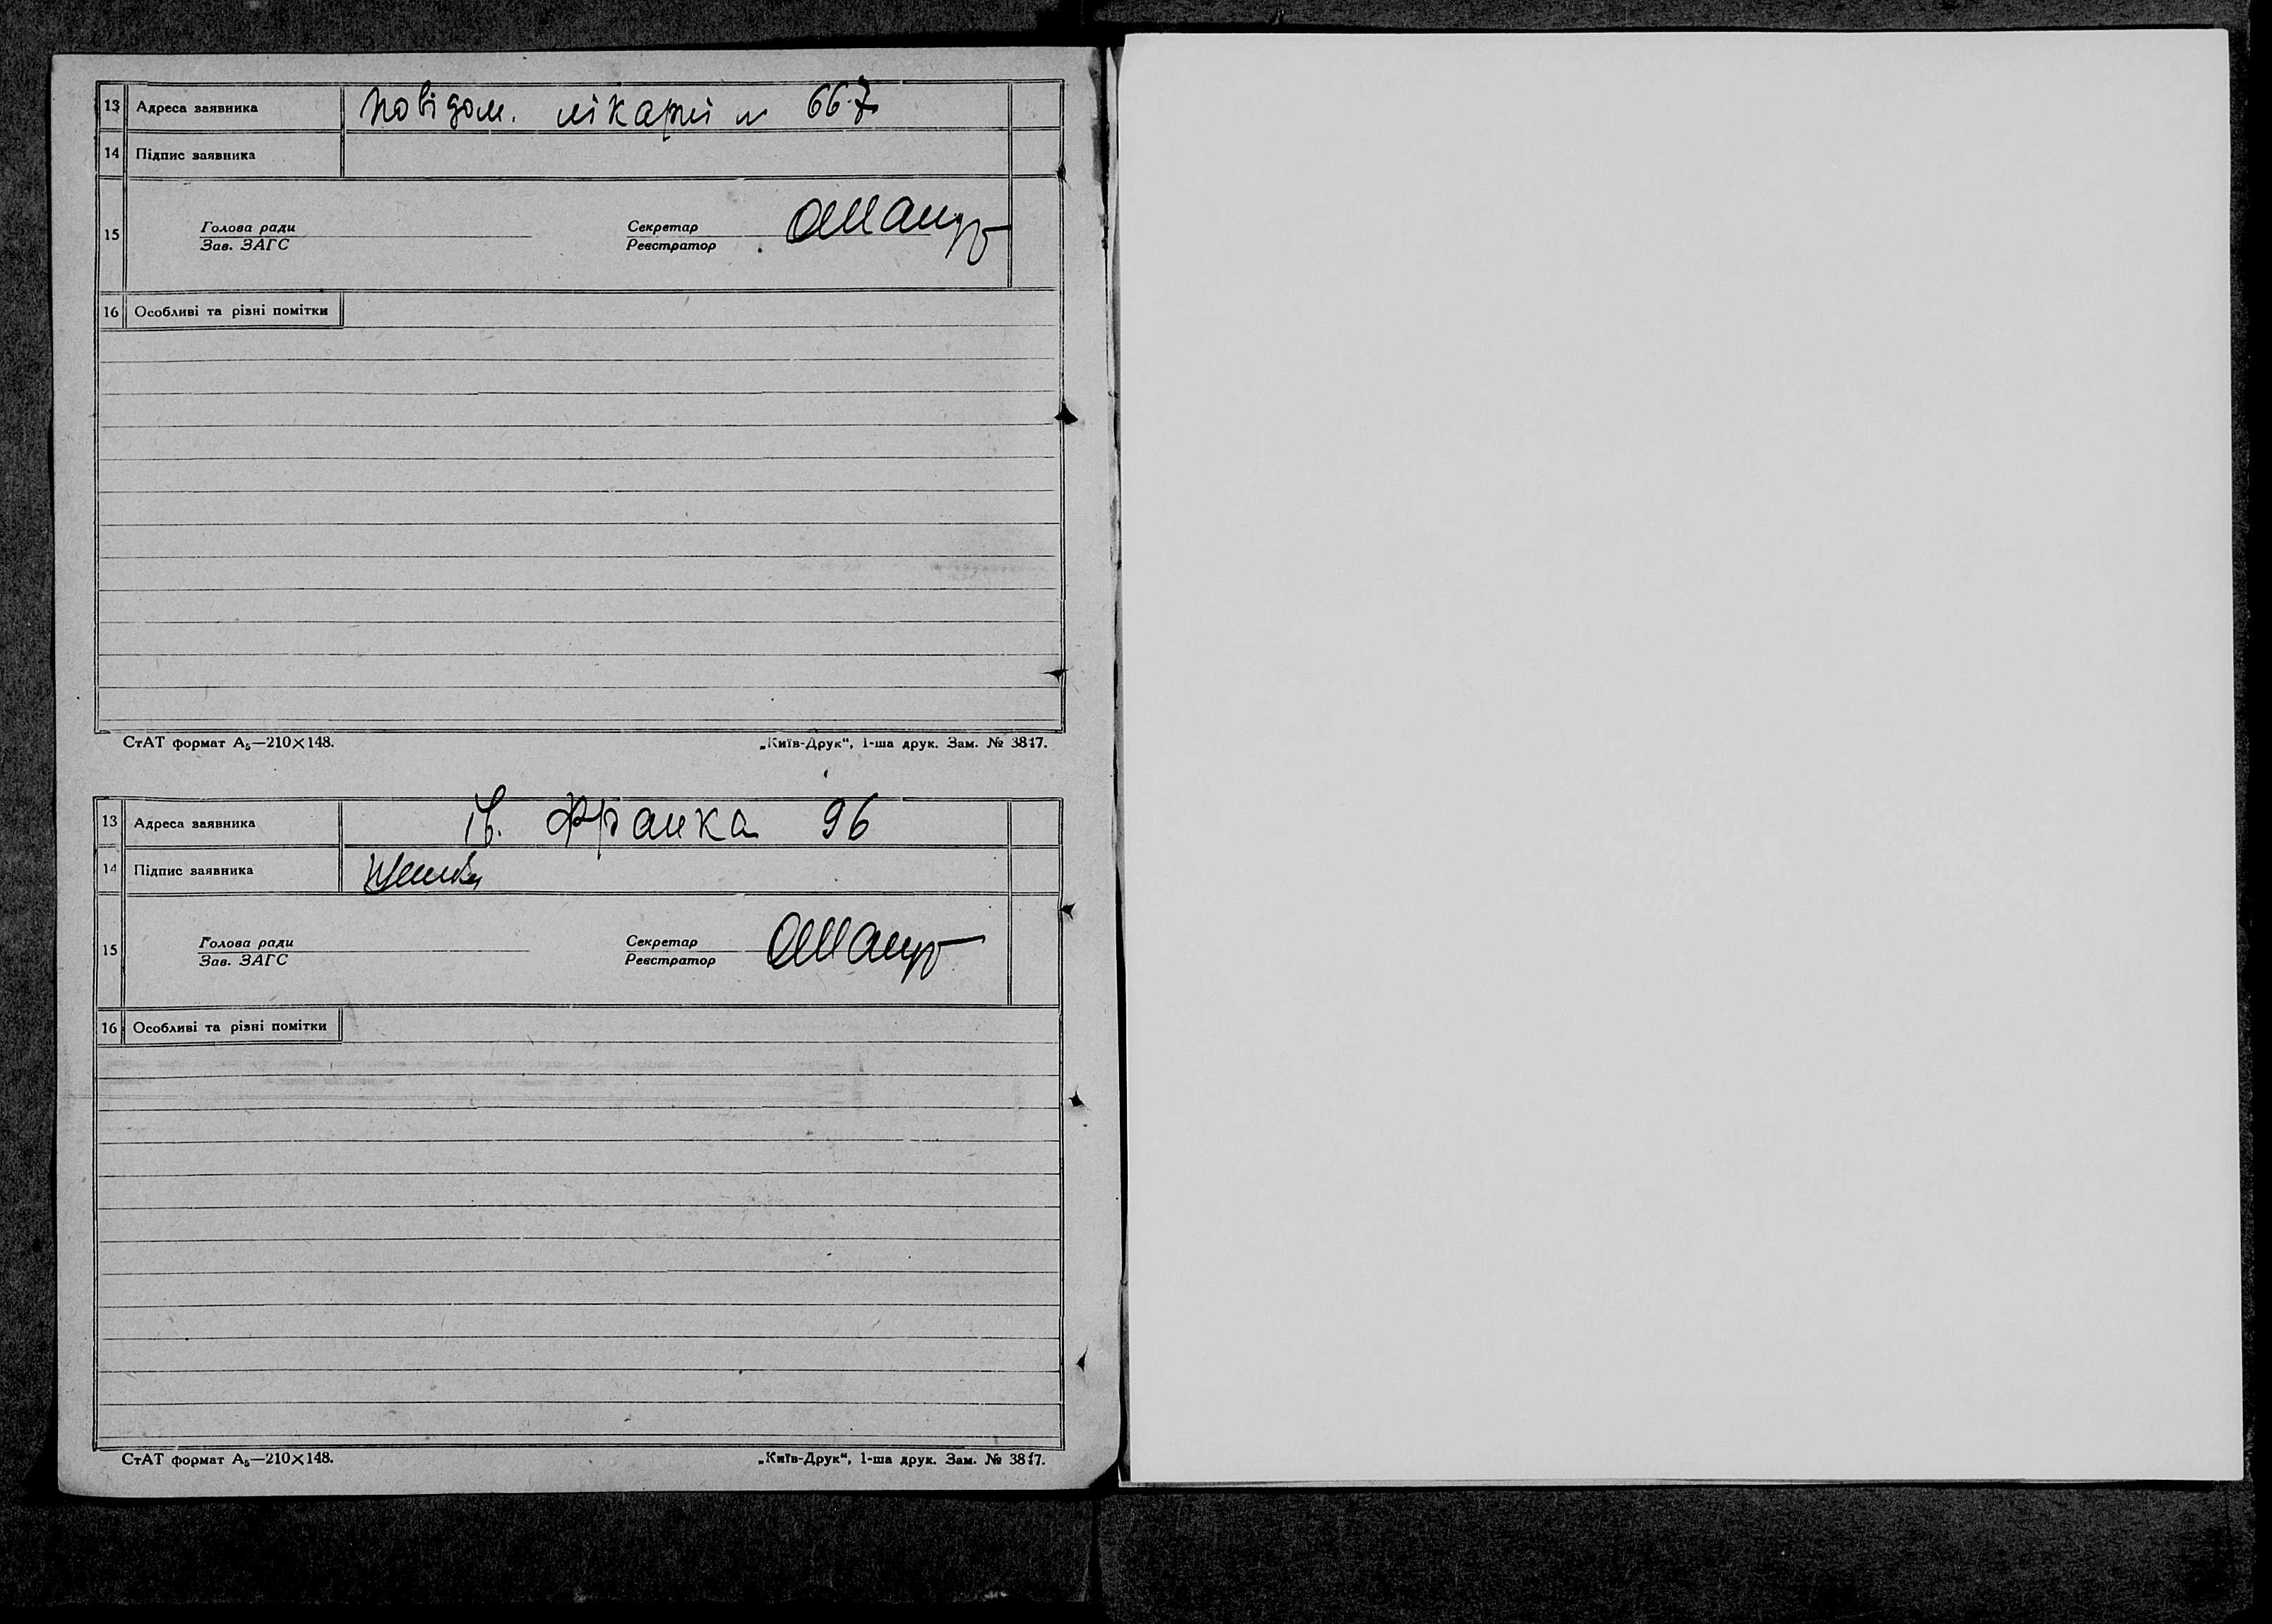 13 Адреса заявника Повідом. лікарні № 667
14 Підпис заявника
15 Голова ради Секретар
Зав. ЗАГС Реєстратор
16 Особливі та різні помітки
СтАТ формат А₅—210×148. „Київ-Друк“, 1-ша друк. Зам. № 3817.
13 Адреса заявника Ів. Франка 96
14 Підпис заявника
15 Голова ради Секретар
Зав. ЗАГС Реєстратор
16 Особливі та різні помітки
СтАТ формат А₅—210×148. „Київ-Друк“, 1-ша друк. Зам. № 3817.